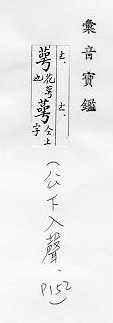 彙音寶鑑
萼 花萼也
蕚 仝上字
(公下入聲, P152)